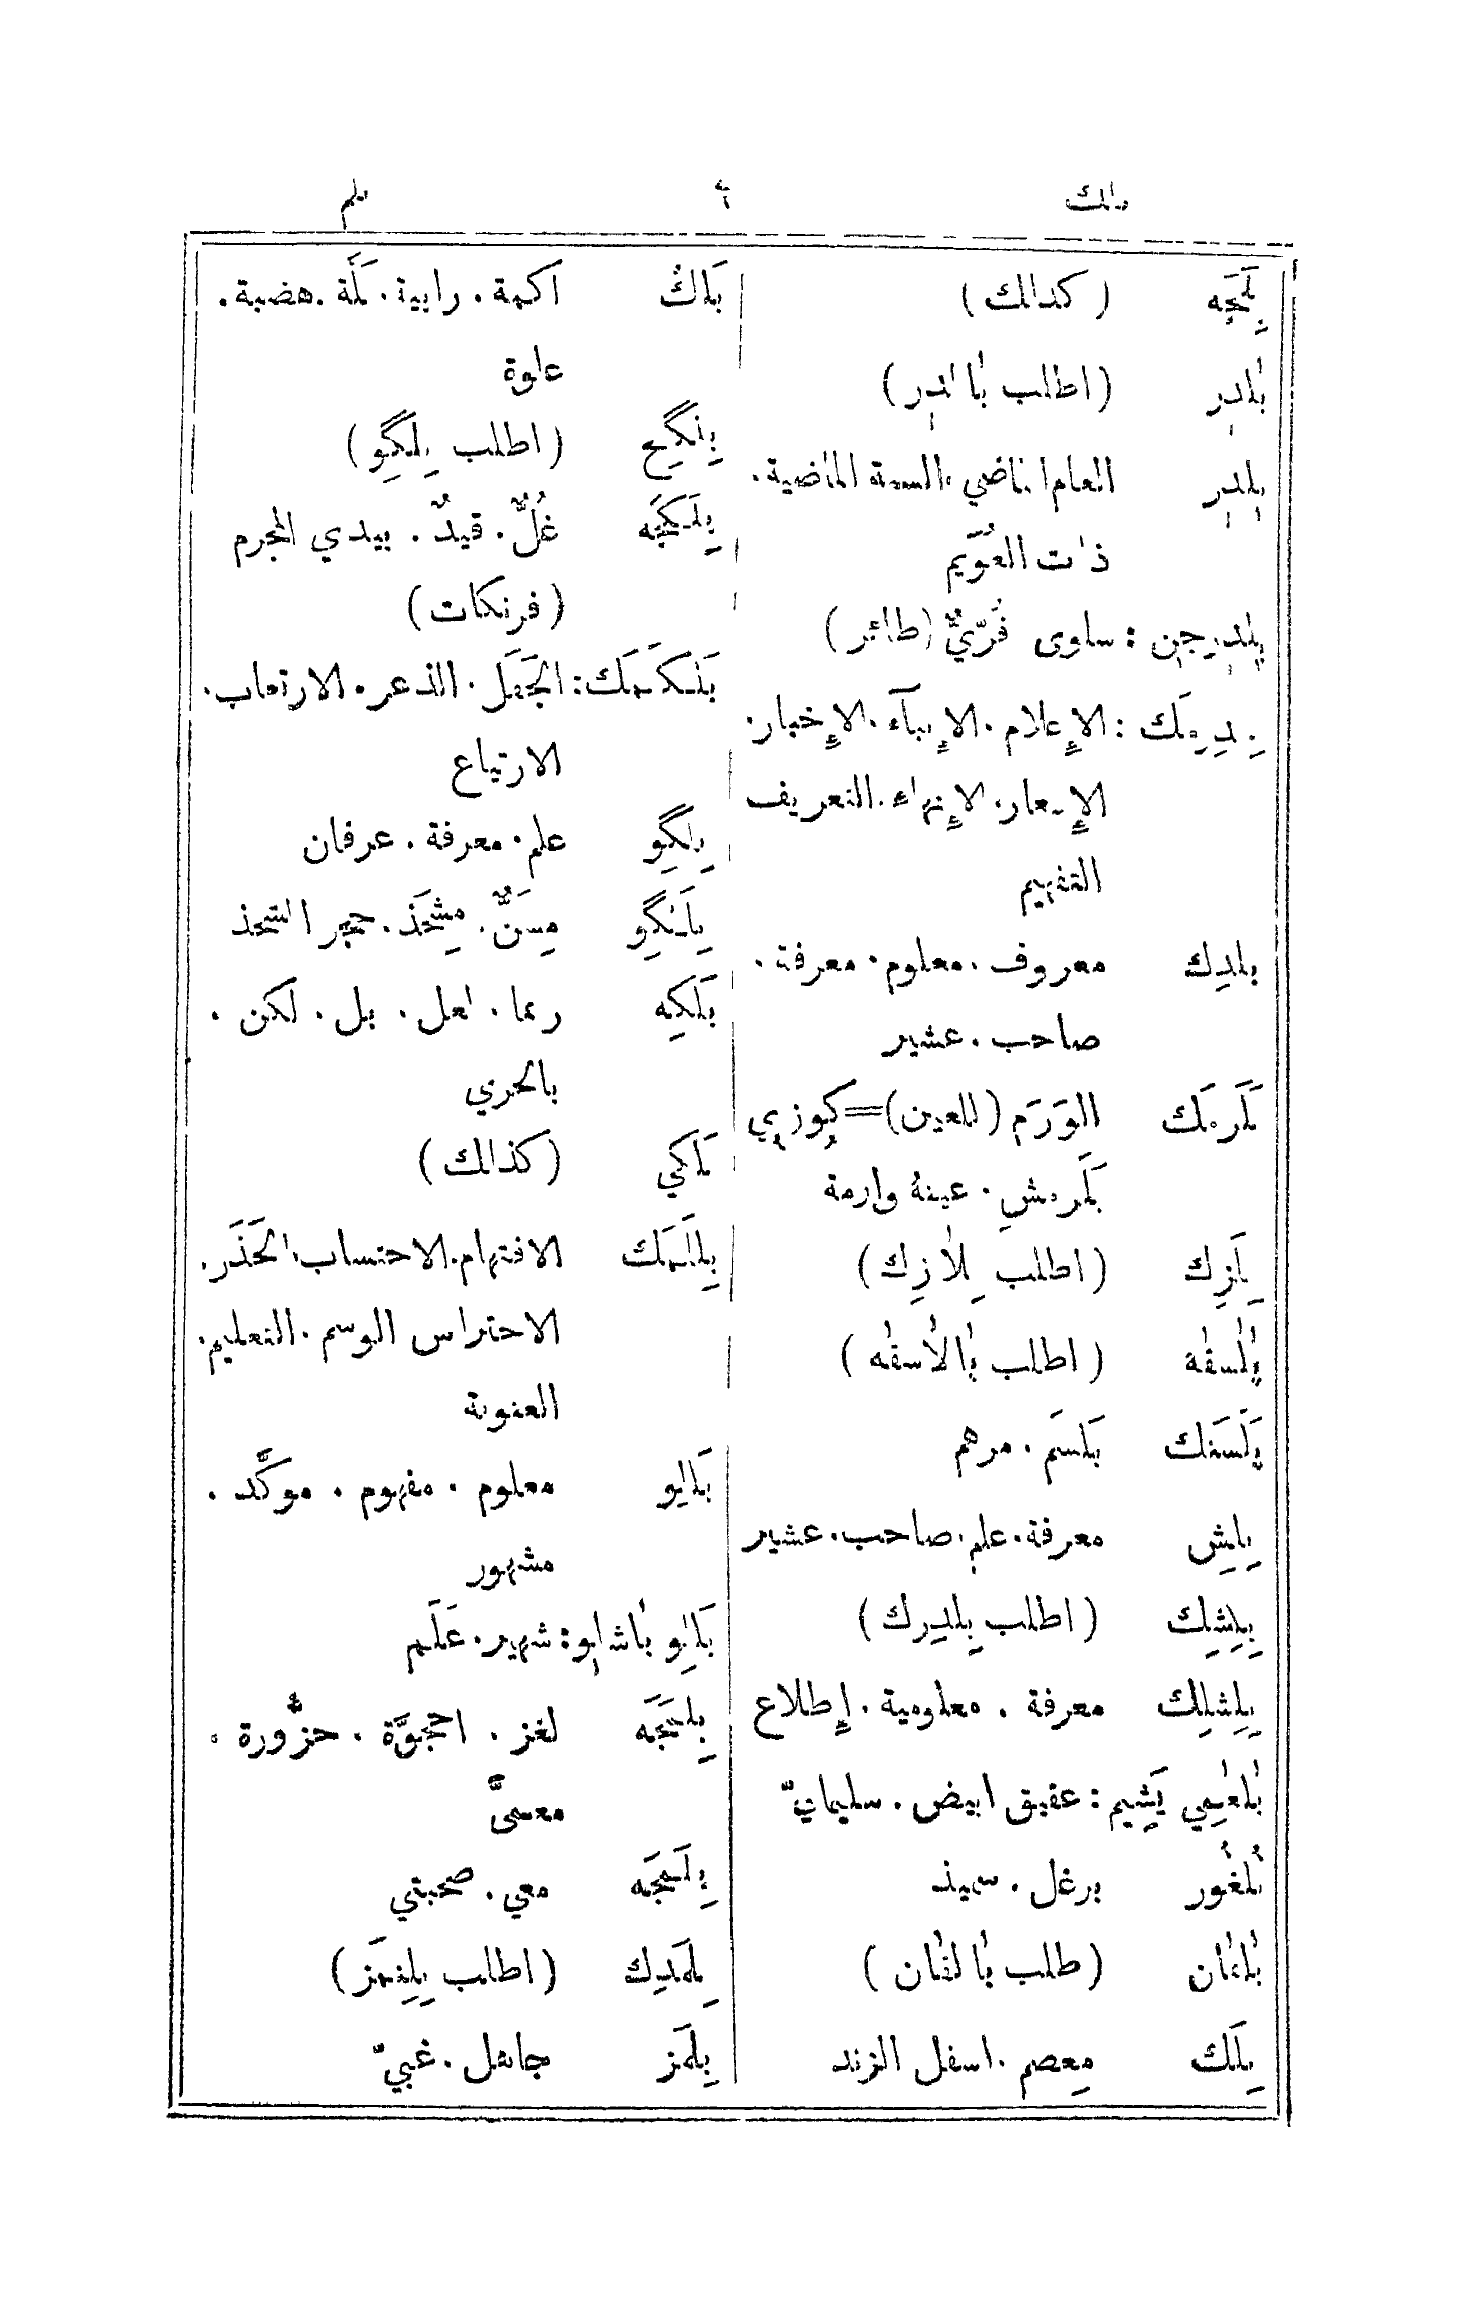 بلك
بلم
بِلَجَه (كذلك)
بٰلدِر (اطلب بٰالدِر)
بِلدِر العام الماضي. السنة الماضية.
ذات العُوَيم
بِلدِرجِن: سلوى فُرّيٌّ (طائر)
بِلدِرمَك: الإعلام. الإنبآء. الإخبار.
الإشعار. الإنهاء. التعريف
التفهيم
بلدِك معروف. معلوم. معرفة.
صاحب. عشير
بَلَرمَك الوَرَم (للعين)=كوزي
بَلَرمش. عينهُ وارمة
بِلَزِك (اطلب بِلاٰزِك)
(اطلب بٰالاٰسقٰه)
بَلَسَنك بَلسَم. مرهم
بِلِش معرفة. علم. صاحب. عشير
بِلِشِك (اطلب بِلدِرك)
بِلِشلِك معرفة. معلومية. إطلاع
بٰلغٰمِي يَشِيم: عقيق ابيض. سليمانيّ
بُلغُور برغل. سميذ
بٰلقٰان (طلب بٰالقٰان)
بِلَك مِعصم. اسفل الزند
بَلَك اكمة. رابية. تَلَّة. هضبة.
علوة
(اطلب بِلكِو)
بِلَكجَه غُلٌّ. قيدٌ. بيدي المجرم
(فرنكات)
بَلَكلَمَك: الجَفَل. الذعر. الارتعاب.
الارتياع
بِلگِو علم. معرفة. عرفان
بِلَنگِو مِسَنٌّ. مِشحَذ. حجر الشحذ
بَلكِه ربما. لعل. بل. لكن.
بالحري
بَلكي (كذلك)
بِلَلَمَك الافتهام. الاحتساب. الحَذَر.
الاحتراس الوسم. التعليم.
العنونة
بَللِو معلوم. مفهوم. موكَّد.
مشهور
بَللِو بٰاشلو: شهير. عَلَم
بِلمَجَه لغز. احجوَّة. حزُّورة.
معمىًّ
بِلَمجَه معي. صحبتي
بِلمَدِك (اطلب بِلِنمَز)
بِلمَز جاهل. غبيّ